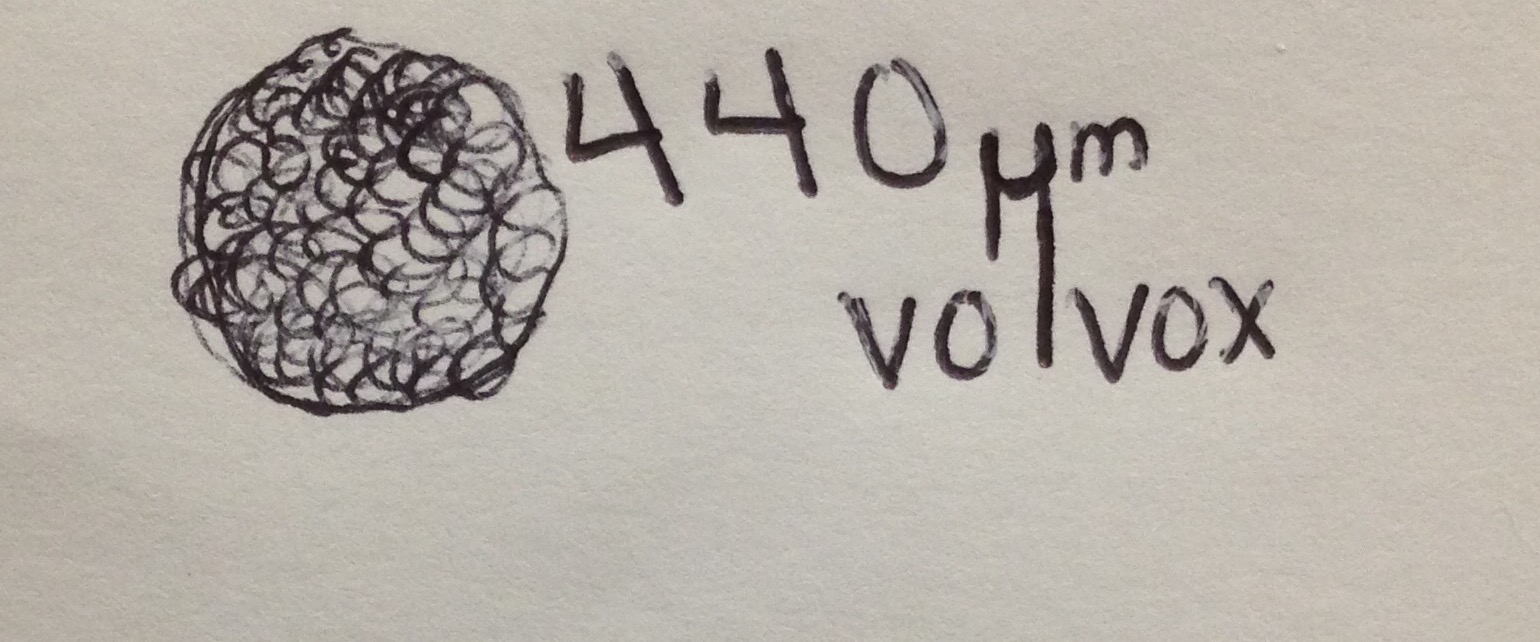 440 µm
volvox